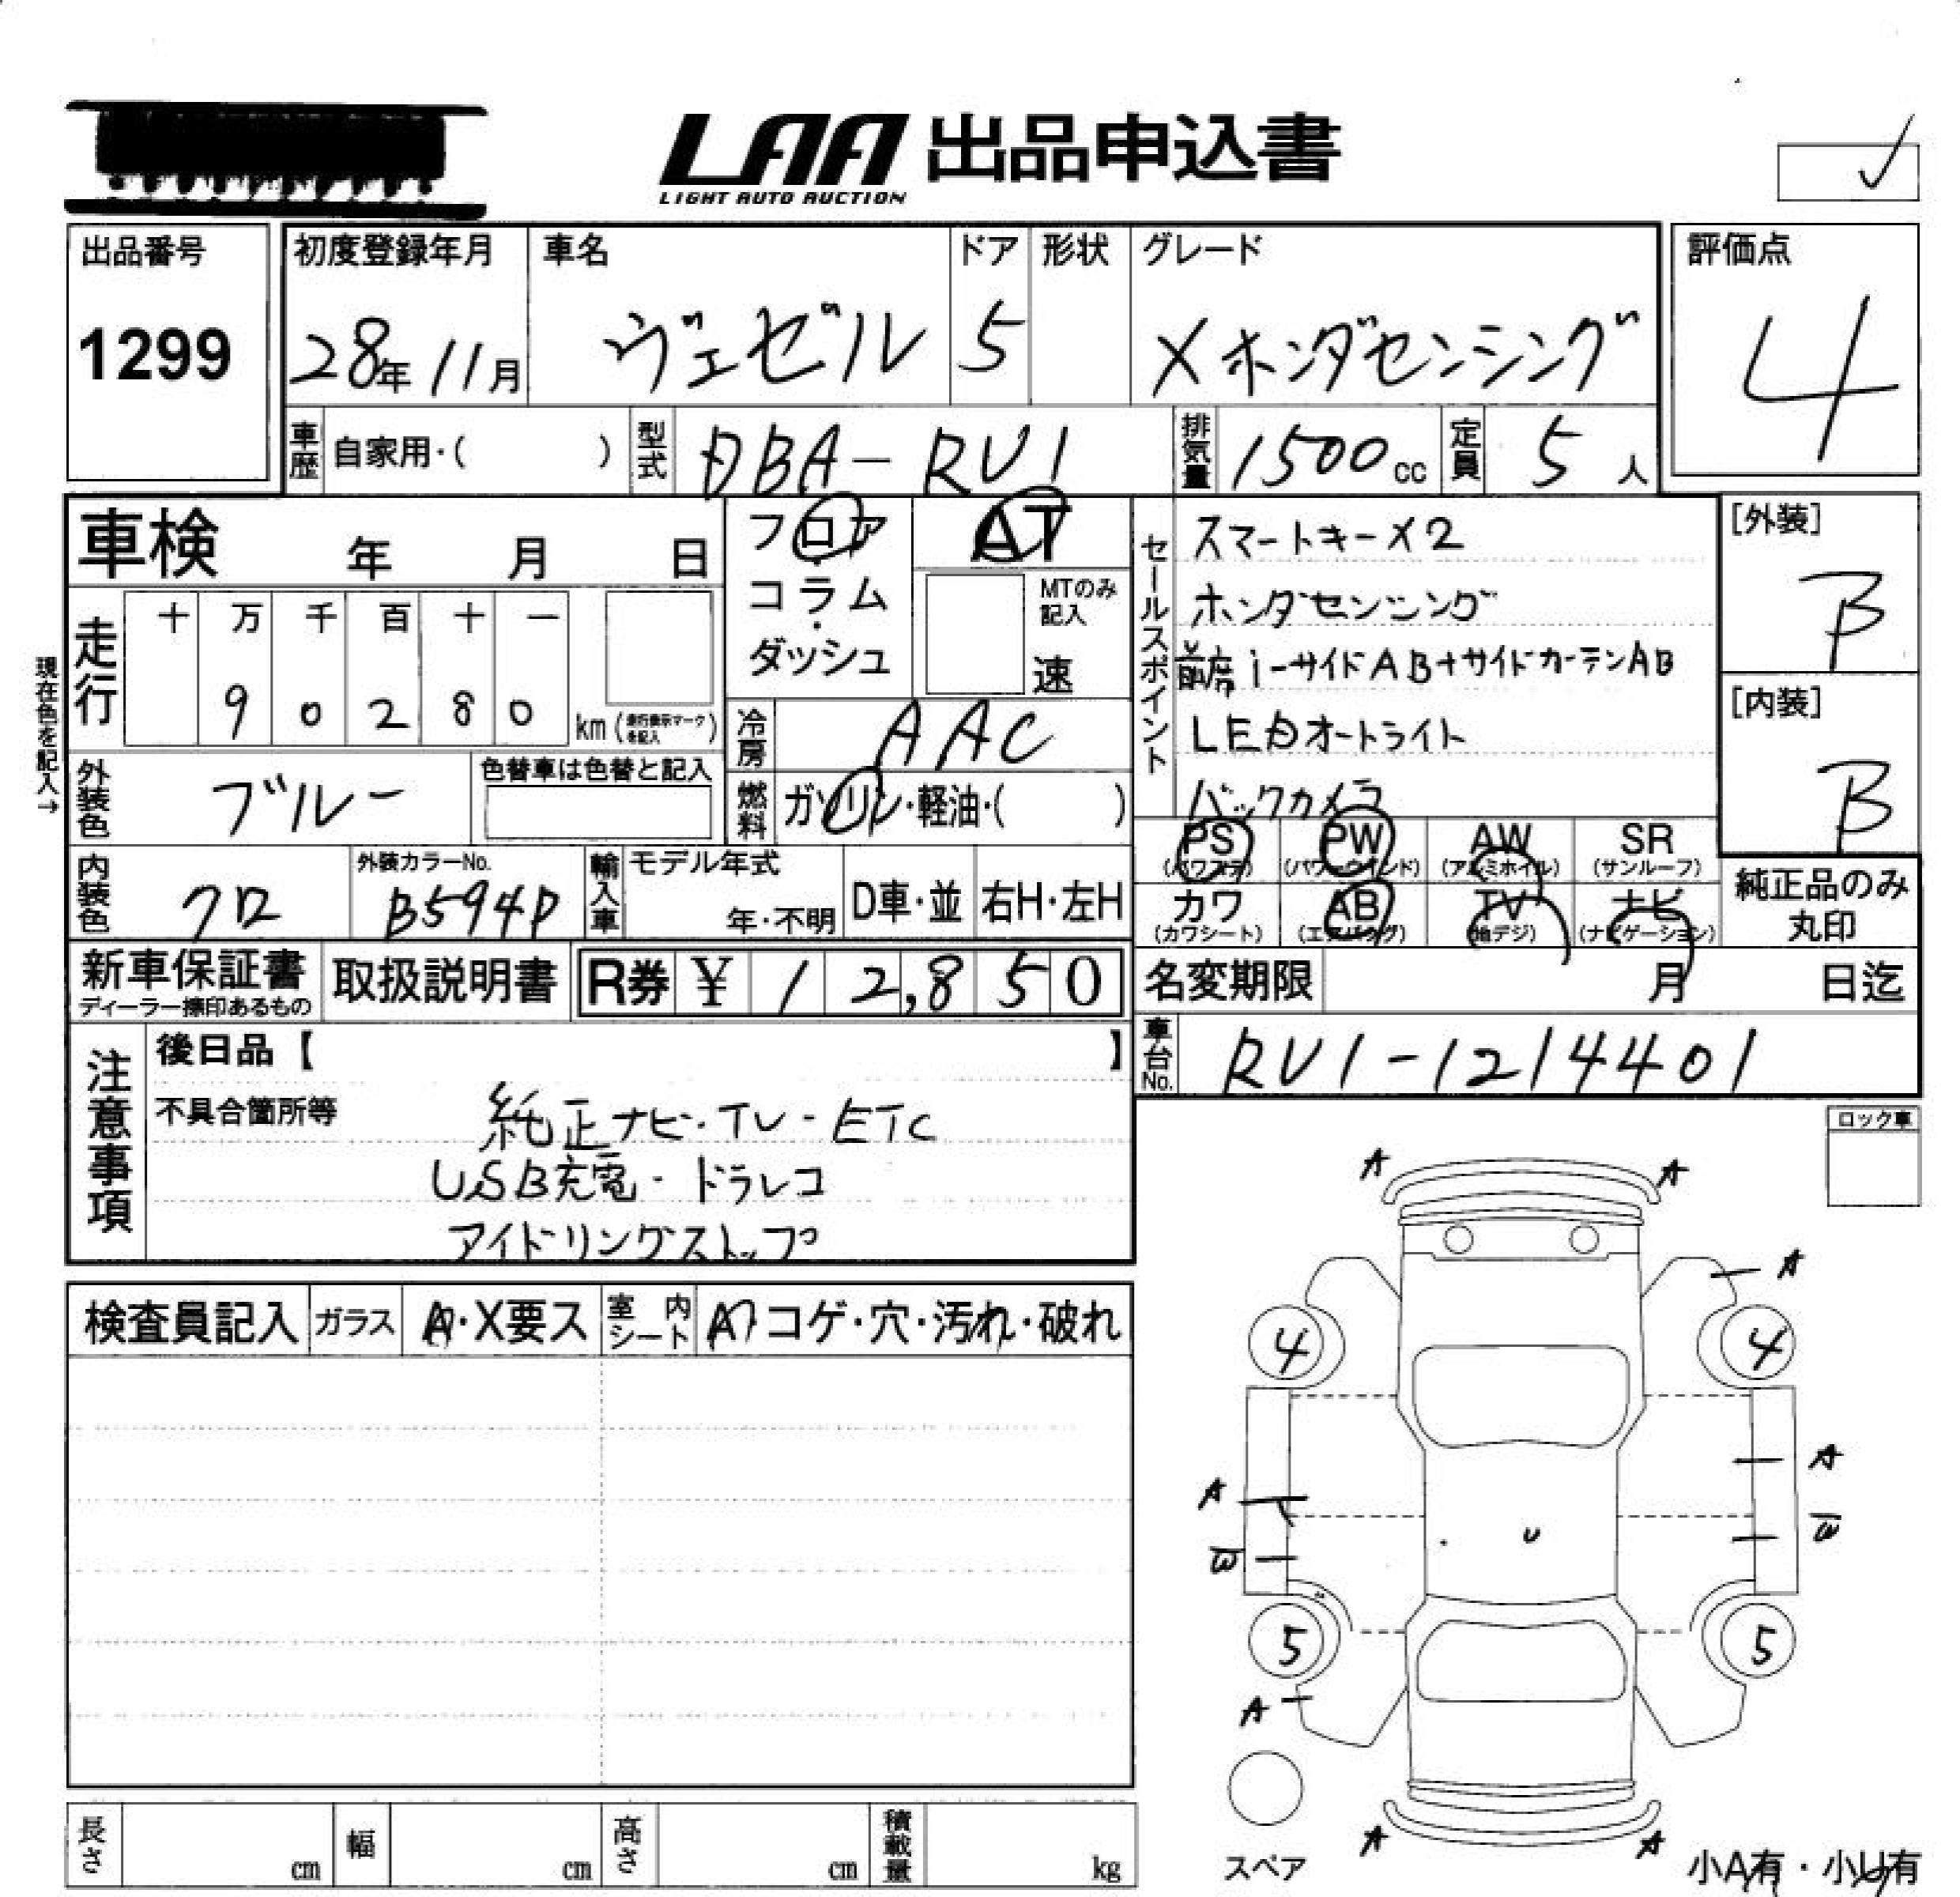 LAA 出品申込書
LIGHT AUTO AUCTION
出品番号
1299
初度登録年月
28年 11月
車名
ヴェゼル
ドア
5
形状
グレード
X ホンダセンシング
評価点
4
車歴 自家用・( )
型式 DBA-RV1
排気量 1500 cc
定員 5 人
車検 年 月 日
フロア・コラム・ダッシュ
AT
MTのみ記入
速
セールスポイント
スマートキー×2
ホンダセンシング
前席i-サイドAB+サイドカーテンAB
LEDオートライト
バックカメラ
[外装]
B
[内装]
B
現在色を記入→
走行
十 万 千 百 十 一
9 0 2 8 0
km (走行表示マークを記入)
冷房 AAC
外装色 ブルー
色替車は色替と記入
燃料 ガソリン・軽油・( )
PS (パワステ)
PW (パワーウインド)
AW (アルミホイル)
SR (サンルーフ)
カワ (カワシート)
AB (エアバッグ)
TV (地デジ)
ナビ (ナビゲーション)
純正品のみ丸印
内装色 クロ
外装カラーNo.
B594P
輸入車
モデル年式
年・不明
D車・並
右H・左H
新車保証書
ディーラー捺印あるもの
取扱説明書
R券 ¥ 12,850
名変期限 月 日迄
車台No. RV1-1214401
注意事項
後日品【 】
不具合箇所等
純正ナビ・TV・ETC
USB充電・ドラレコ
アイドリングストップ
ロック車
検査員記入
ガラス A・X要ス
室内シート A コゲ・穴・汚れ・破れ
A A
A
4 4
A
A
W
U
W
5 5
A
スペア
A A
小A有・小U有
長さ cm
幅 cm
高さ cm
積載量 kg